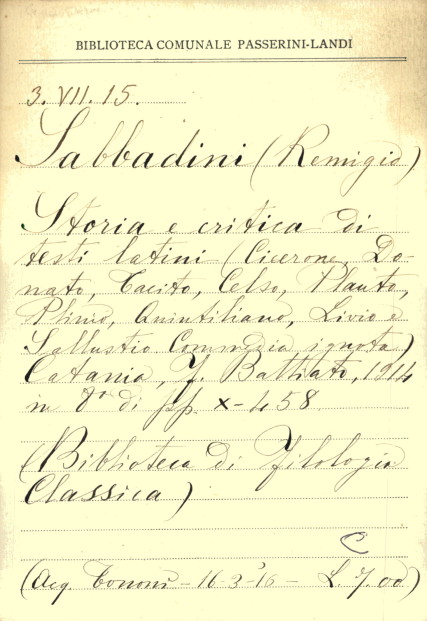 BIBLIOTECA COMUNALE PASSERINI-LANDI
3. VII. 15.
Sabbadini (Remigio)
Storia e critica di
testi latini (Cicerone, Do-
nato, Tacito, Celso, Plauto,
Plinio, Quintiliano, Livio e
Sallustio Commedia ignota)
Catania, F. Battiato, 1914
in 8° di pp. X-458
(Biblioteca di Filologia
Classica)
C
(Acq. Tononi - 16-3-16 - L. 7.00)